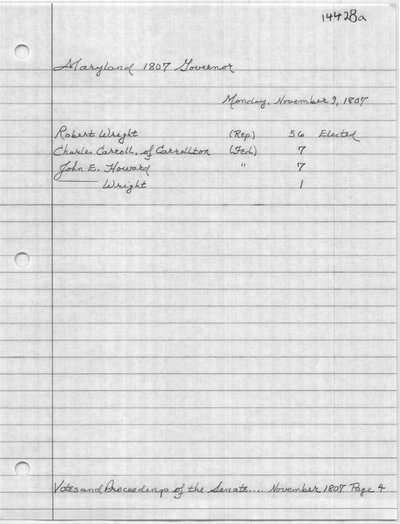 14428a
Maryland 1807 Governor
Monday, November 9, 1807
Robert Wright (Rep) 56 Elected
Charles Carroll, of Carrollton (Fed) 7
John E. Howard " 7
——— Wright 1
Votes and Proceedings of the Senate.... November 1807 Page 4